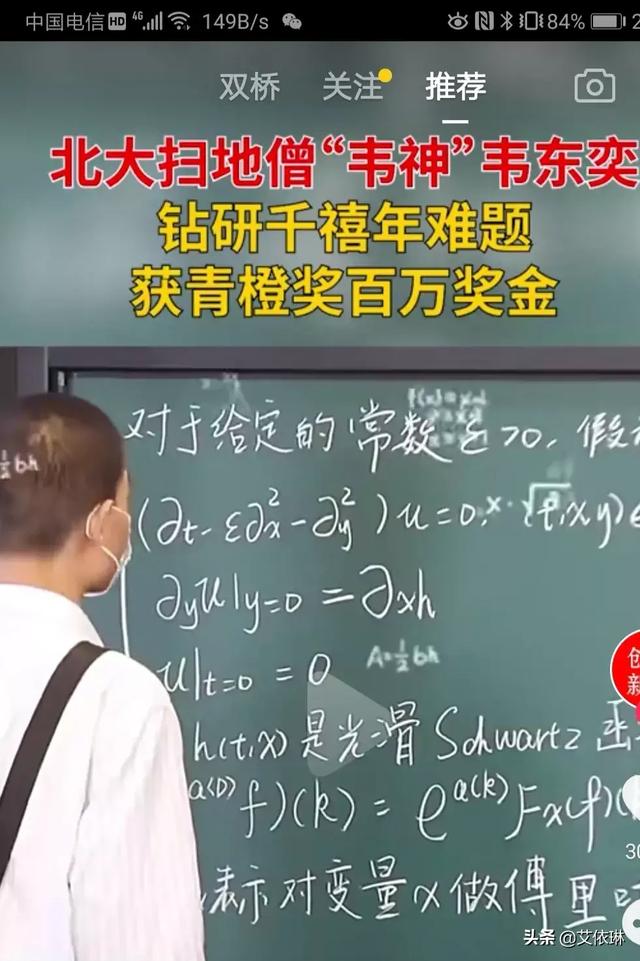 中国电信 HD 4G 149B/s 84%
双桥 关注 推荐
北大扫地僧“韦神”韦东奕
钻研千禧年难题
获青橙奖百万奖金
对于给定的常数 ε>0, 假
½bh
(∂t-ε∂x²-∂y²)u=0, (t,x,y)∈
∂yu|y=0=∂xh
A=½bh
u|t=0=0
创新
h(t,x)是光滑Schwartz函
a(D)f)(k)=e^a(k)Fx(f)(
表示对变量x做傅里
头条 @艾依琳